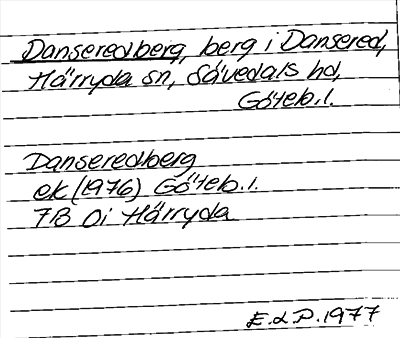 Danseredberg, berg i Dansered,
Härryda sn, Sävedals hd,
Göteb. l.
Danseredberg
ek (1976) Göteb. l.
7B 0i Härryda
E.d P. 1977